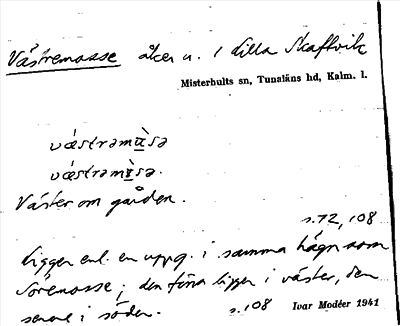 Västremosse åker n. i Lilla Skaftvik
Misterhults sn, Tunaläns hd, Kalm. l.
västrəmùsə
västrəmùsə.
Väster om gården.
s. 72, 108
Ligger enl. en uppg. i samma hägn som
Söremosse; den förra ligger i väster, den
senare i söder. s. 108 Ivar Modéer 1941